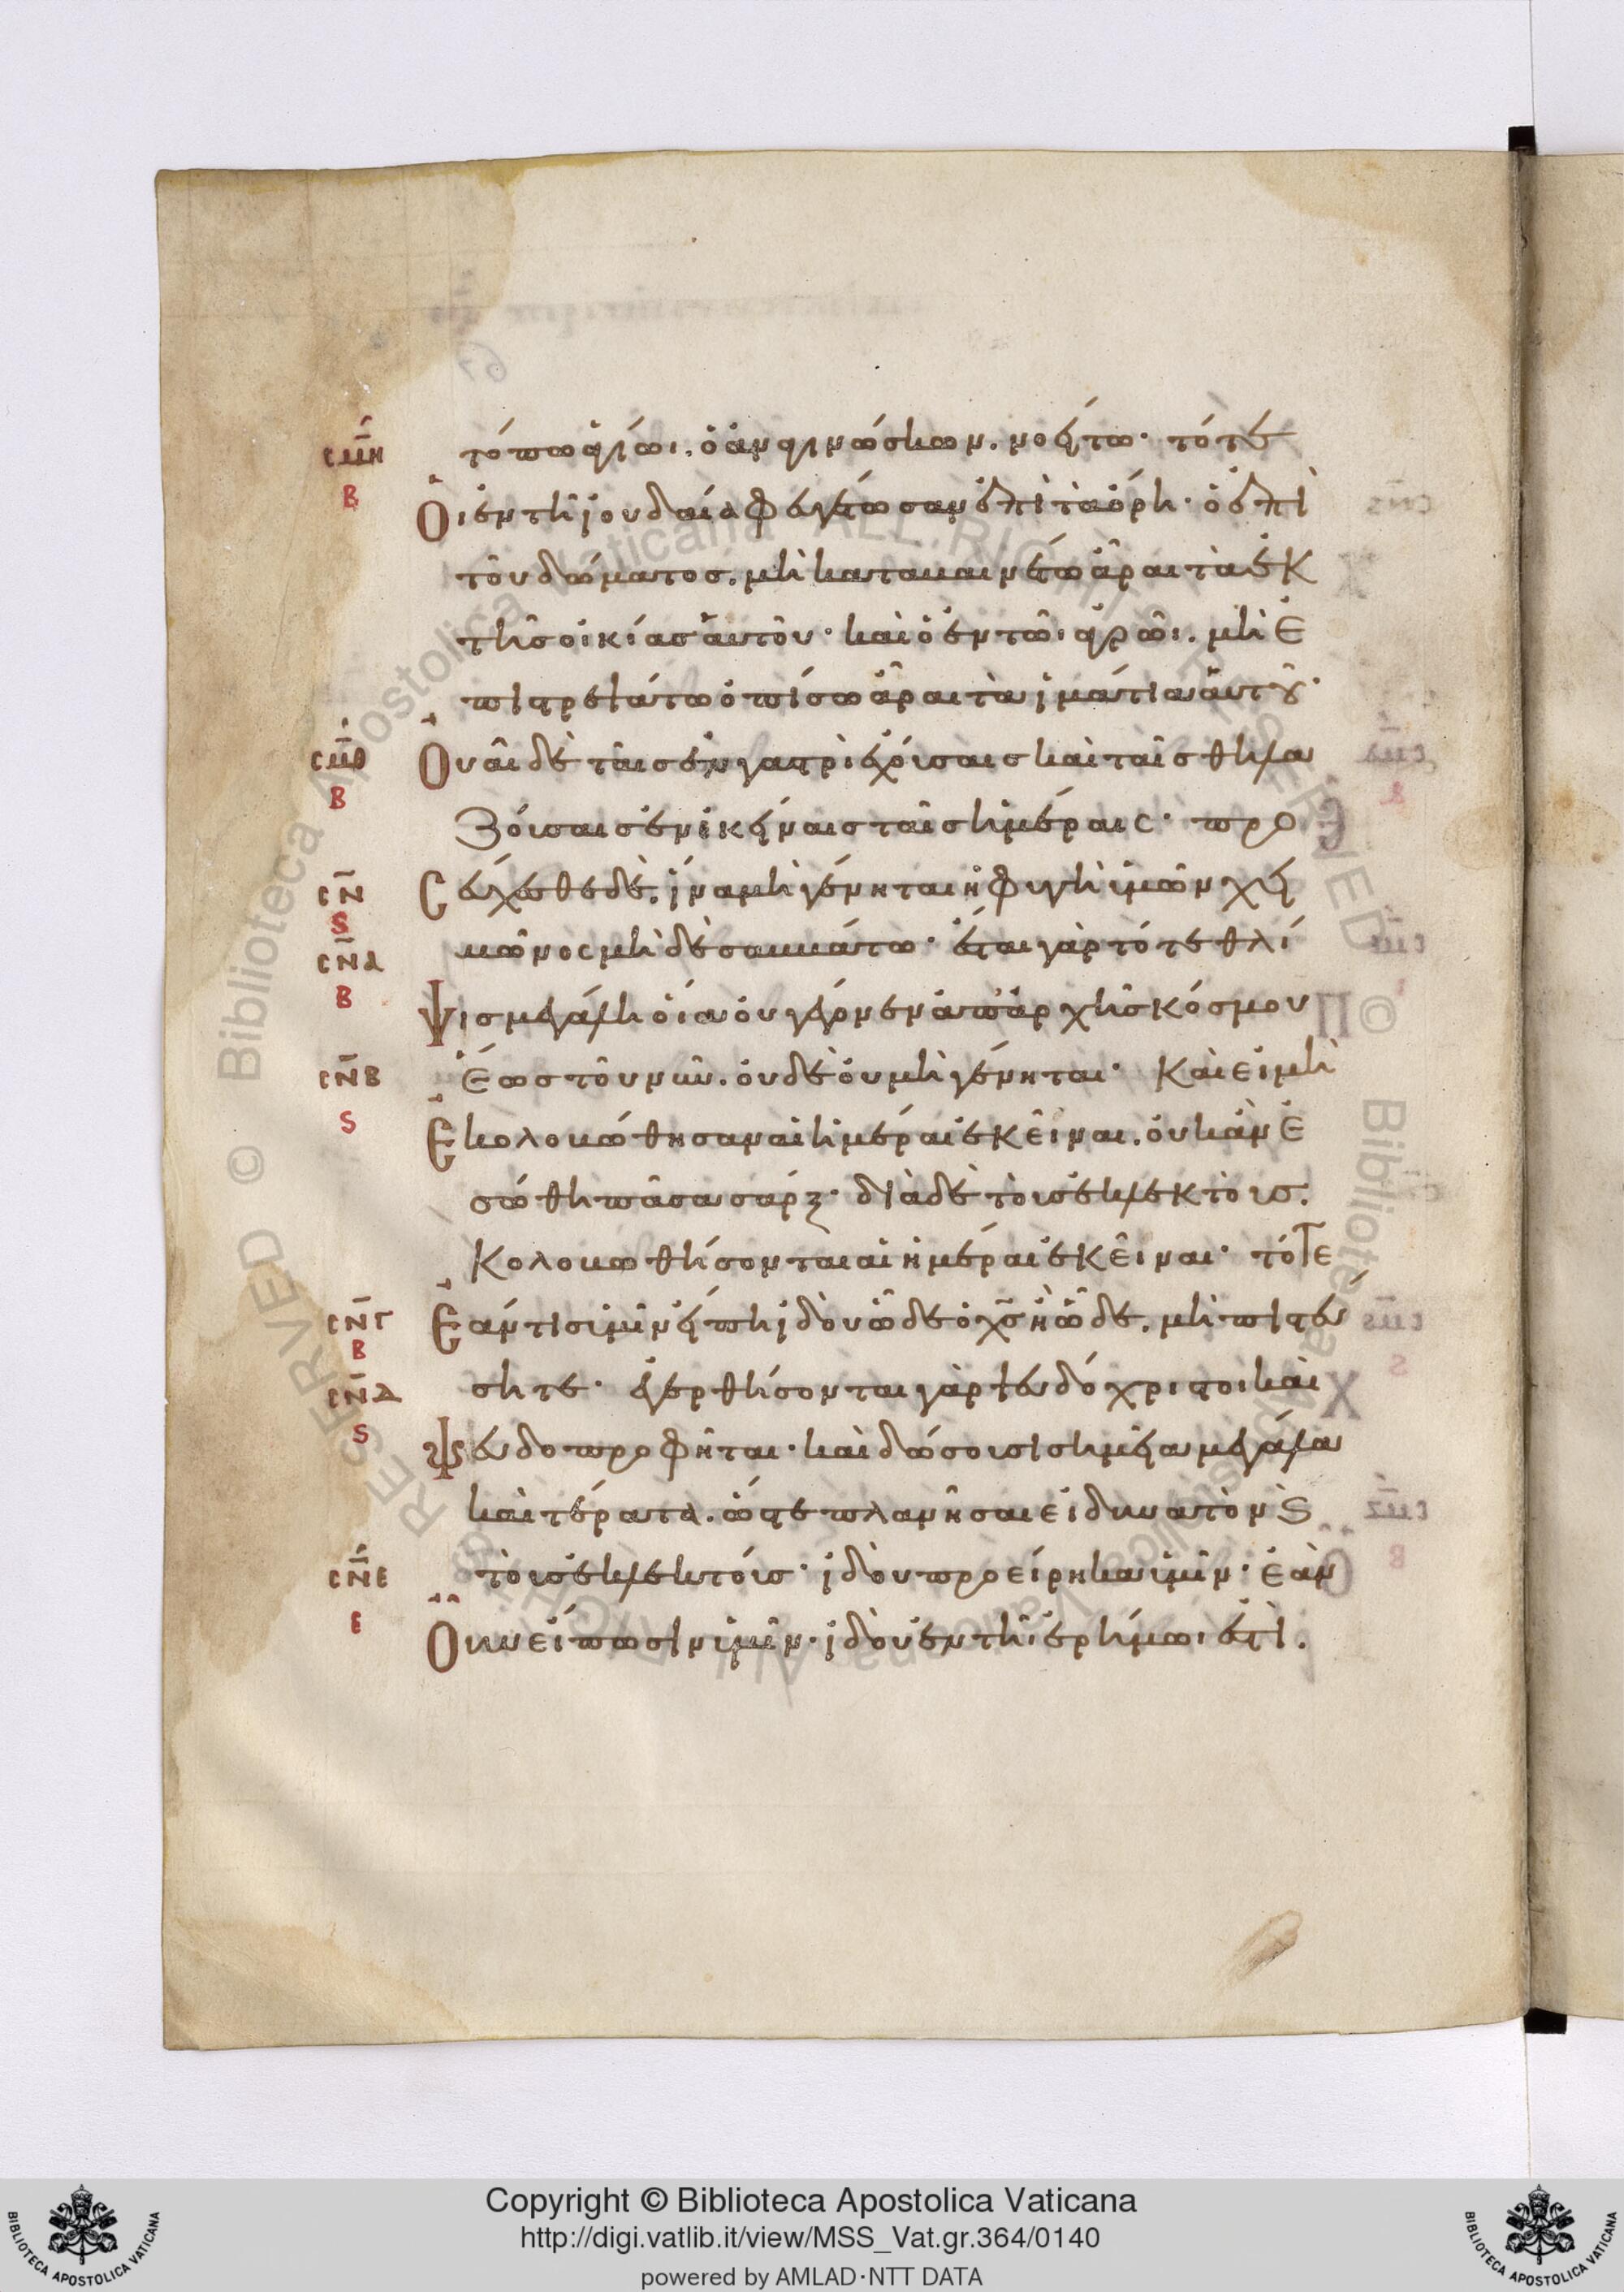 τόπω ἁγίωι. ὁ ἀναγινώσκων. νοείτω· τότε
σμη
β
Οἱ ἐν τῆ ἰουδαία φευγέτωσαν ἐπὶ τὰ ὄρη· ὁ ἐπὶ
τοῦ δώματος. μὴ καταβαινέτω ἆραι τὰ ἐκ
τῆς οἰκίας αὐτοῦ· καὶ ὁ ἐν τῶι ἀγρῶι. μὴ ἐ
πιστρεψάτω ὀπίσω ἆραι τὰ ἱμάτια αὐτοῦ·
σμθ
β
Οὐαὶ δὲ ταῖς ἐν γαστρὶ ἐχούσαις καὶ ταῖς θηλα
ζούσαις ἐν ἐκείναις ταῖς ἡμέραις· προ
σν
ς
Σεύχεσθε δὲ. ἵνα μὴ γένηται ἡ φυγὴ ὑμῶν χει
σνα
β
μῶνος μὴ δὲ σαββάτω· ἔσται γὰρ τότε θλί
Ψις μεγάλη οἵα οὐ γέγονεν ἀπ' ἀρχῆς κόσμου
σνβ
ς
ἕως τοῦ νῦν. οὐδὲ οὐ μὴ γένηται· Καὶ εἰ μὴ
Ἐκολοβώθησαν αἱ ἡμέραι ἐκεῖναι. οὐκ ἂν ἐ
σώθη πᾶσα σάρξ· διὰ δὲ τοὺς ἐκλεκτοὺς.
Κολοβωθήσονται αἱ ἡμέραι ἐκεῖναι· τότε
σνγ
β
Ἐάν τις ὑμῖν εἴπη ἰδοὺ ὧδε ὁ χς ἢ ὧδε. μὴ πιστεύ
σνδ
ς
σητε· ἐγερθήσονται γὰρ ψευδόχριστοι καὶ
Ψευδοπροφῆται· καὶ δώσουσι σημεῖα μεγάλα
καὶ τέρατα. ὥστε πλανῆσαι εἰ δυνατὸν ϗ
σνε
ε
τοὺς ἐκλεκτούς· ἰδοὺ προείρηκα ὑμῖν· ἐὰν
Οὖν εἴπωσιν ὑμῖν· ἰδοὺ ἐν τῆι ἐρήμωι ἐστὶ.
© Biblioteca Apostolica Vaticana ALL RIGHTS RESERVED
Copyright © Biblioteca Apostolica Vaticana
http://digi.vatlib.it/view/MSS_Vat.gr.364/0140
powered by AMLAD·NTT DATA
BIBLIOTECA APOSTOLICA VATICANA
BIBLIOTECA APOSTOLICA VATICANA